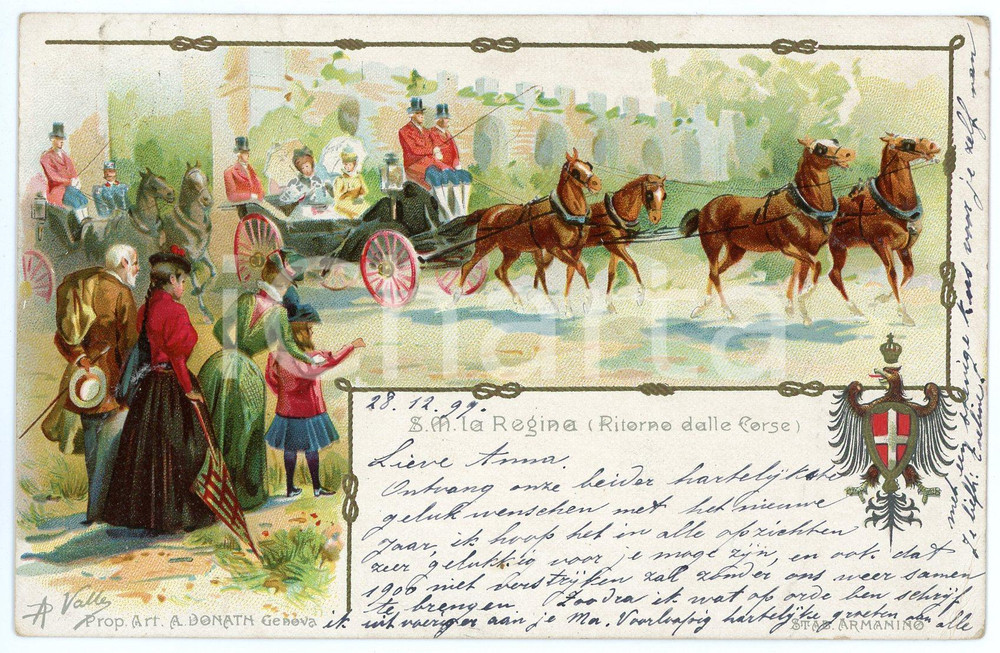 28.12.99.
S.M. la Regina (Ritorno dalle Corse)
Lieve Anna.
Ontvang onze beider hartelijkste
gelukwenschen met het nieuwe
Jaar, ik hoop het in alle opzichten
zeer gelukkig voor je moge zijn, en ook dat
1900 niet verstrijken zal zonder ons weer samen
te brengen. Zoodra ik wat op orde ben schrijf
ik uitvoeriger aan je Ma. Voorloopig hartelijke groeten aan alle
met een innige kus voor je zelf van
Je liefh.
AP Valle
Prop. Art. A. DONATH Genova
STAB. ARMANINO
iCharta